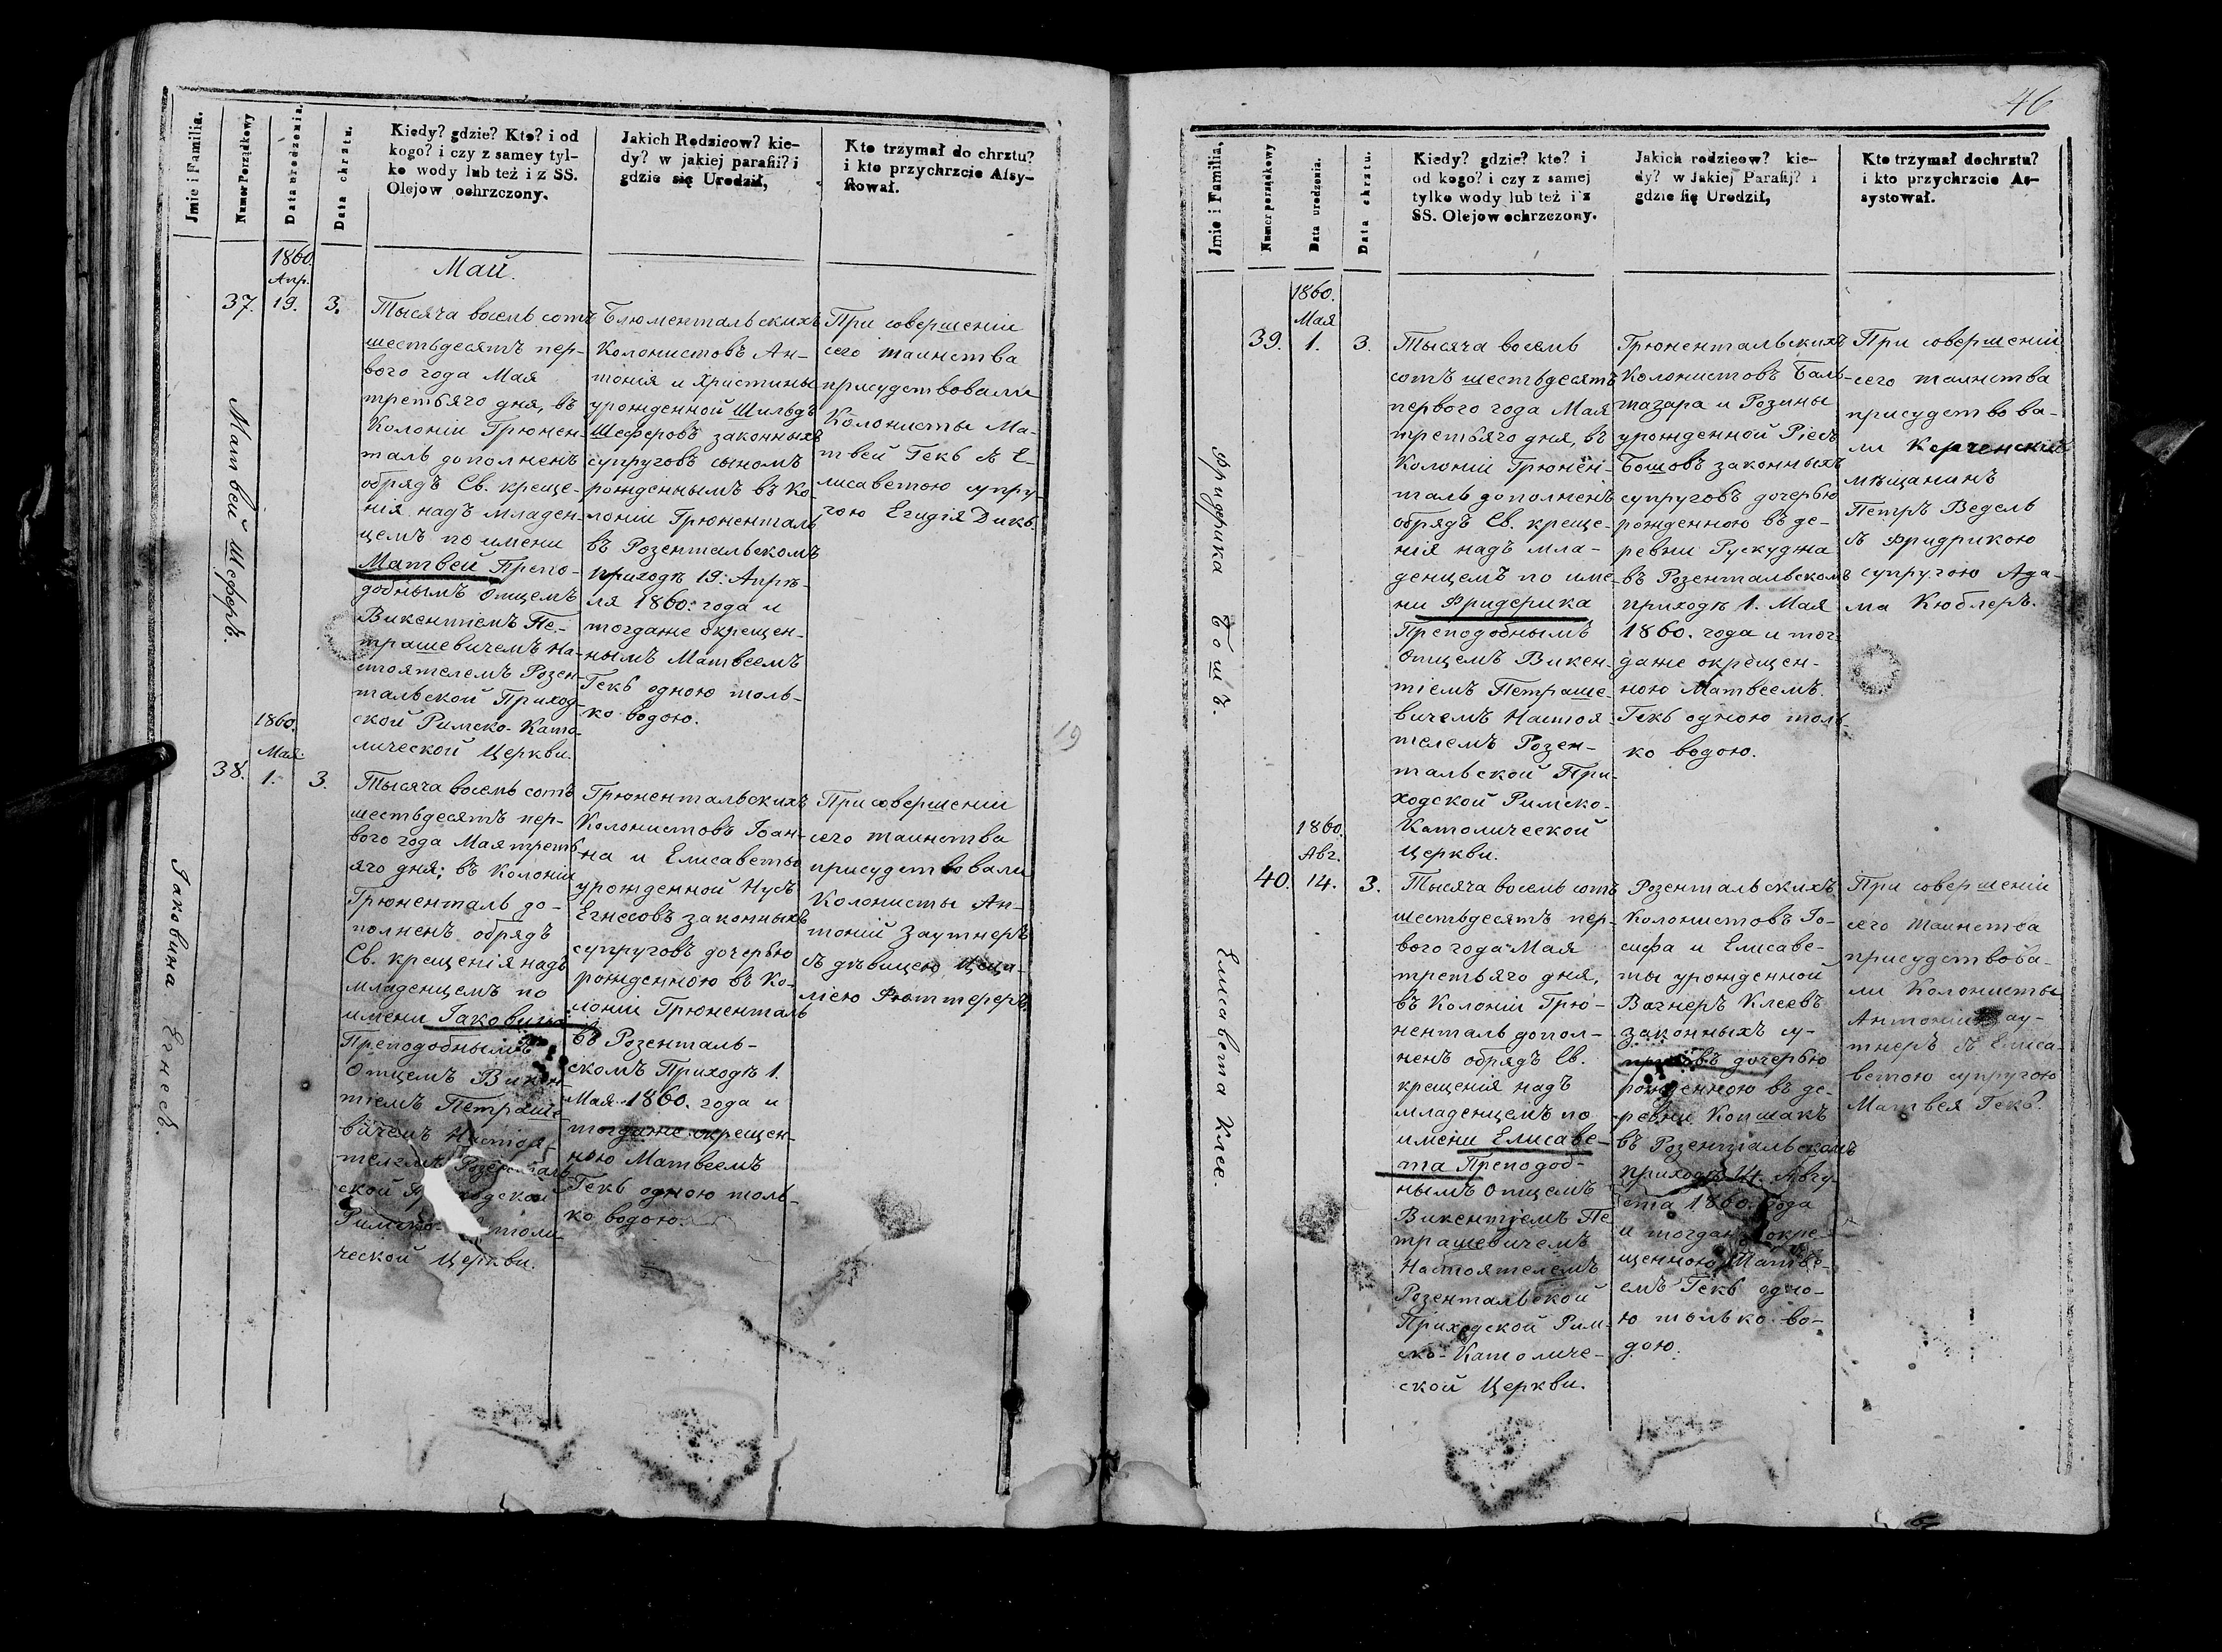 Jmie i Familia.
Numer Porządkowy
Data urodzenia.
Data chrztu.
Kiedy? gdzie? Kto? i od
kogo? i czy z samey tyl-
ko wody lub też i z SS.
Olejow ochrzczony.
Jakich Rodzicow? kie-
dy? w jakiej parafii? i
gdzie się Urodził,
Kto trzymał do chrztu?
i kto przychrzcie Afsy-
stował.
1860.
Апр.
Май.
37.
19.
3.
Матвей Шеферъ.
Тысяча восемь сотъ
шестьдесятъ пер-
вого года Мая
третьяго дня, въ
Колоніи Грюнен-
таль дополненъ
обрядъ Св. креще-
нія надъ младен-
цемъ по имени
Матвей Препо-
добнымъ Отцемъ
Викентіемъ Пе-
трашевичемъ На-
стоятелемъ Розен-
тальской Приход-
ской Римско-Като-
лической Церкви.
Блюментальскихъ
Колонистовъ Ан-
тонія и Христины
урожденной Шильдъ
Шеферовъ законныхъ
супруговъ сыномъ
рожденнымъ въ Ко-
лоніи Грюненталь
въ Розентальскомъ
приходѣ 19. Апрѣ-
ля 1860. года и
тогдаже окрещен-
нымъ Матвеемъ
Гекъ одною толь-
ко водою.
При совершеніи
сего таинства
присудствовали
Колонисты Ма-
твей Гекъ съ Е-
лисаветою супру-
гою Егидія Дикъ.
1860.
Мая
38.
1.
3.
Іаковина Егнесъ.
Тысяча восемь сотъ
шестьдесятъ пер-
вого года Мая треть
яго дня; въ Колоніи
Грюненталь до-
полненъ обрядъ
Св. крещенія надъ
младенцемъ по
имени Іаковина
Преподобнымъ
Отцемъ Викен-
тіемъ Петраше-
вичемъ Настоя-
телемъ Розенталь
ской
Римско-
ческой Церкви.
Грюнентальскихъ
Колонистовъ Іоан-
на и Елисаветы
урожденной Нусъ
Егнесовъ законныхъ
супруговъ дочерью
рожденною въ Ко-
лоніи Грюненталь
въ Розенталь-
скомъ Приходѣ 1.
Мая 1860. года и
тогдаже окрещен-
ною Матвеемъ
Гекъ одною толь-
ко водою.
При совершеніи
сего таинства
присудствовали
Колонисты Ан-
тоній Заутнеръ
съ дѣвицею Цеци-
ліею Фюттереръ.
19
46
Jmie i Familia.
Numer porządkowy
Data urodzenia.
Data chrztu.
Kiedy? gdzie? kto? i
od kogo? i czy z samej
tylko wody lub też i z
SS. Olejow ochrzczony.
Jakich rodzicow? kie-
dy? w Jakiej Parafij? i
gdzie się Urodził,
Kto trzymał dochrztu?
i kto przychrzcie As-
systował.
1860.
Мая
39.
1.
3.
Фридрика Бошъ.
Тысяча восемь
сотъ шестьдесятъ
первого года Мая
третьяго дня, въ
Колоніи Грюнен-
таль дополненъ
обрядъ Св. креще-
нія надъ мла-
денцемъ по име-
ни Фридерика
Преподобнымъ
Отцемъ Викен-
тіемъ Петраше-
вичемъ Настоя-
телемъ Розен-
тальской При-
ходской Римско-
Католической
Церкви.
Грюнентальскихъ
Колонистовъ Баль-
тазара и Розины
урожденной Рісъ
Бошовъ законныхъ
супруговъ дочерью
рожденною въ де-
ревни Рускуджа
въ Розентальскомъ
приходѣ 1. Мая
1860. года и тог-
даже окрещен-
ною Матвеемъ
Гекъ одною толь
ко водою.
При совершеніи
сего таинства
присудствова-
ли Керченскій
мѣщанинъ
Петръ Ведель
съ Фридрикою
супругою Ада-
ма Кюблеръ.
1860.
Авг.
40.
14.
3.
Елисавета Клее.
Тысяча восемь сотъ
шестьдесятъ пер-
вого года Мая
третьяго дня,
въ Колоніи Грю-
ненталь допол-
ненъ обрядъ Св.
крещенія надъ
младенцемъ по
имени Елисаве-
та Преподоб-
нымъ Отцемъ
Викентіемъ Пе
трашевичемъ
Настоятелемъ
Розентальской
Приходской Рим-
ско-Католиче-
ской Церкви.
Розентальскихъ
Колонистовъ Іо-
сифа и Елисаве-
ты урожденной
Вагнеръ Клеевъ
законныхъ су-
пруговъ дочерью
рожденною въ де-
ревни Копшакъ
въ Розентальскомъ
приходѣ 14. Авгу-
ста 1860. года
и тогдаже окре-
щенною Матве-
емъ Гекъ одно-
ю только во-
дою.
При совершеніи
сего таинства
присудствова-
ли Колонисты
Антоній Зау-
тнеръ съ Елиса-
ветою супругою
Матвея Гекъ.